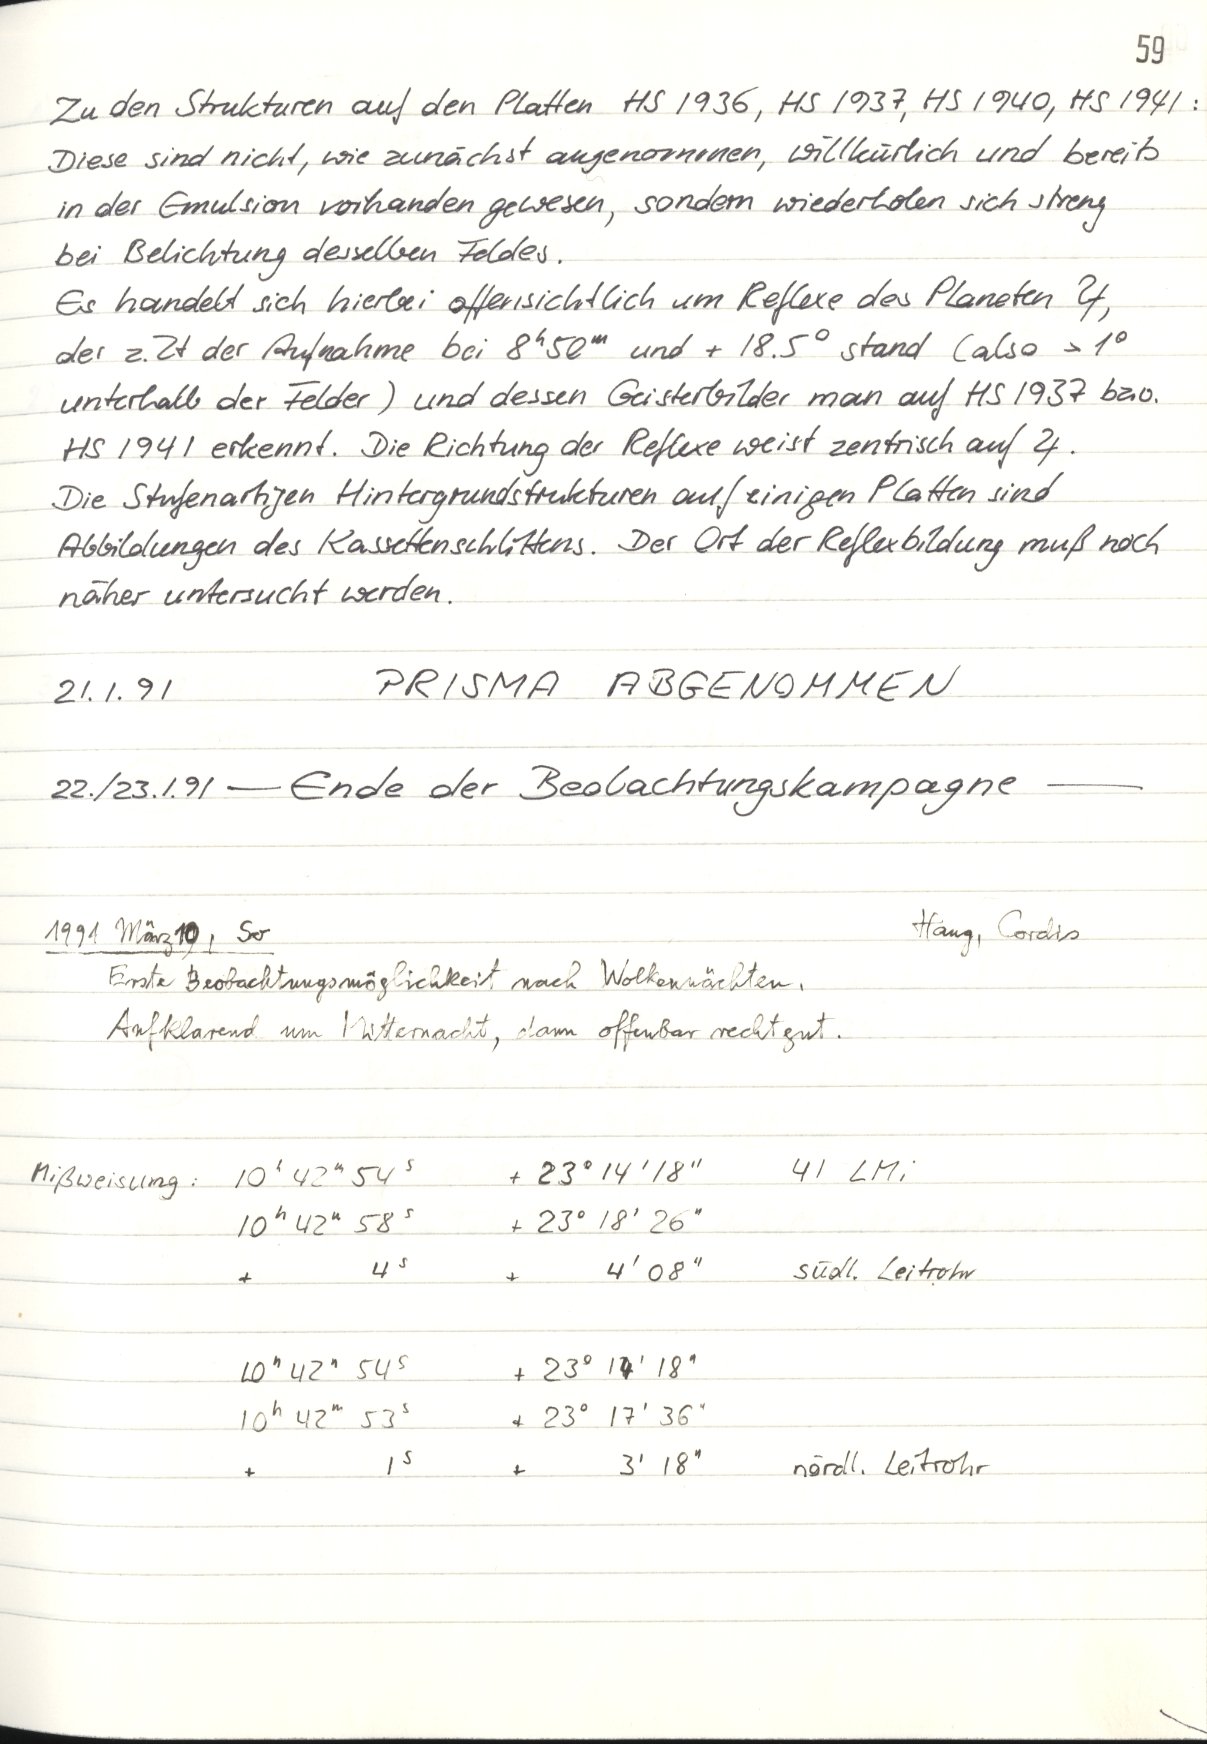 59
Zu den Strukturen auf den Platten HS 1936, HS 1937, HS 1940, HS 1941:
Diese sind nicht, wie zunächst angenommen, willkürlich und bereits
in der Emulsion vorhanden gewesen, sondern wiederholen sich streng
bei Belichtung desselben Feldes.
Es handelt sich hierbei offensichtlich um Reflexe des Planeten ♃,
der z.Zt der Aufnahme bei 8ʰ50ᵐ und + 18.5° stand (also > 1°
unterhalb der Felder) und dessen Geisterbilder man auf HS 1937 bzw.
HS 1941 erkennt. Die Richtung der Reflexe weist zentrisch auf ♃.
Die Stufenartigen Hintergrundstrukturen auf einigen Platten sind
Abbildungen des Kassettenschlittens. Der Ort der Reflexbildung muß noch
näher untersucht werden.
21.1.91 PRISMA ABGENOMMEN
22./23.1.91 — Ende der Beobachtungskampagne —
1991 März 10, So Haug, Cordis
Erste Beobachtungsmöglichkeit nach Wolkennächten.
Aufklarend um Mitternacht, dann offenbar recht gut.
Mißweisung: 10ʰ 42ᵐ 54ˢ + 23° 14' 18" 41 LMi
10ʰ 42ᵐ 58ˢ + 23° 18' 26"
+ 4ˢ + 4' 08" südl. Leitrohr
10ʰ 42ᵐ 54ˢ + 23° 14' 18"
10ʰ 42ᵐ 53ˢ + 23° 17' 36"
+ 1ˢ + 3' 18" nördl. Leitrohr